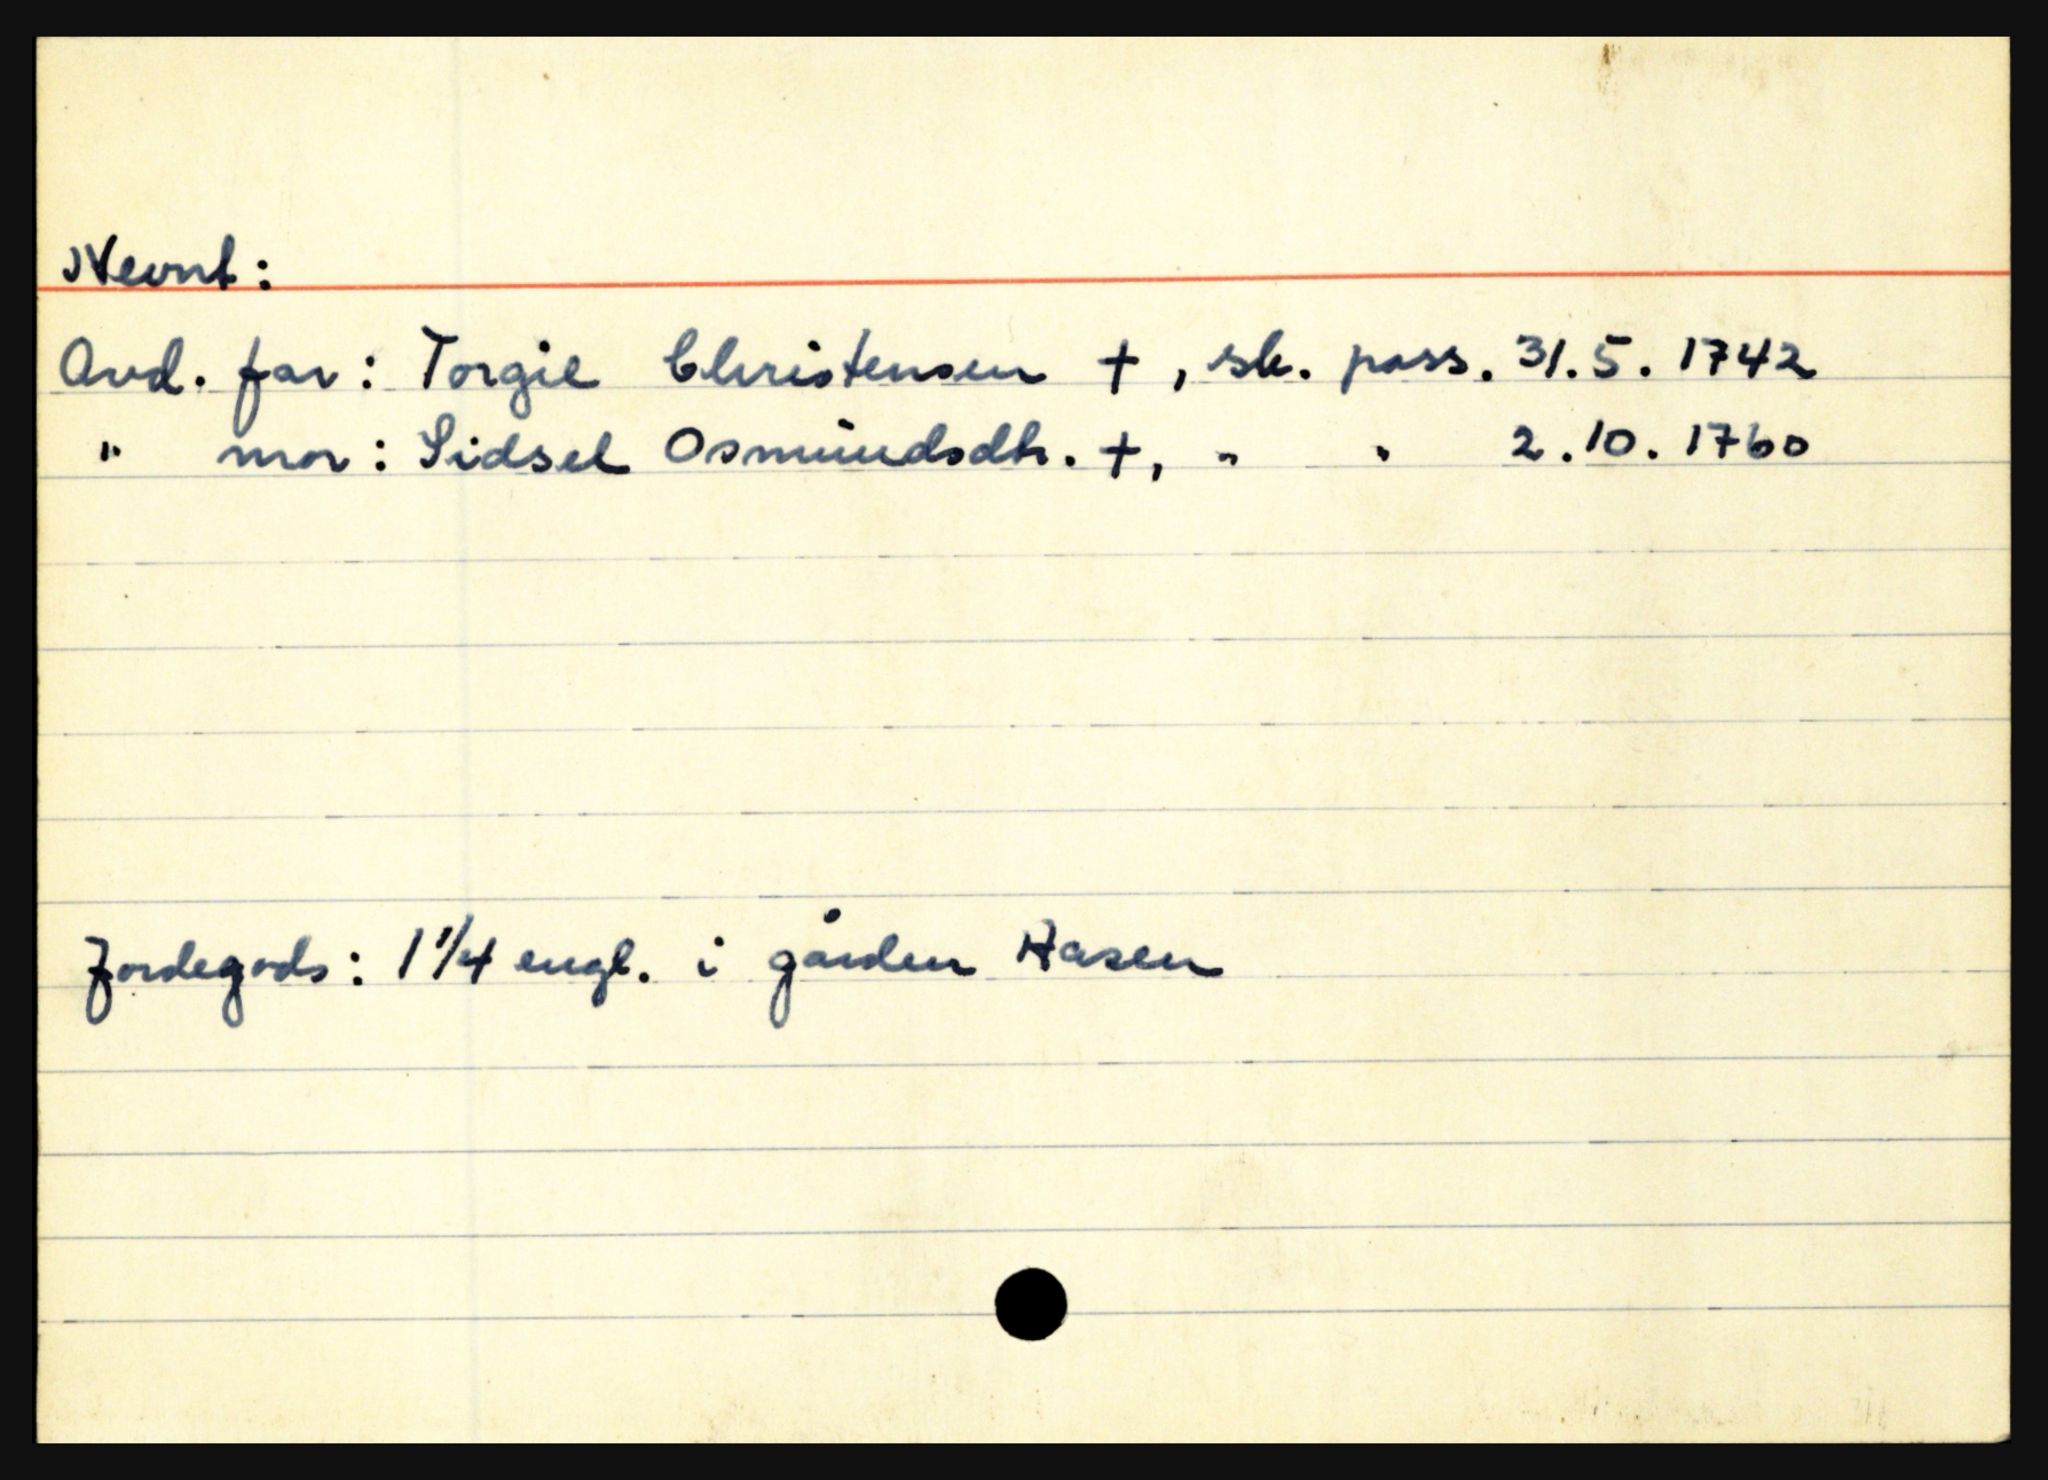 Nevnt:
Avd. far: Torgil Christensen †, sk. pass. 31.5. 1742
" mor: Sidsel Osmundsdtr. †, " " 2.10. 1760
Jordegods: 1 1/4 engl. i gården Aasen